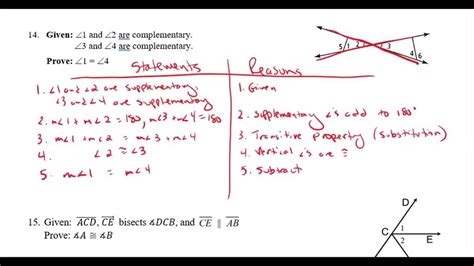 14. Given: ∠1 and ∠2 are complementary.
∠3 and ∠4 are complementary.
Prove: ∠1 = ∠4
5 1 2 3 4 6
Statements Reasons
1. ∠1 and ∠2 are supplementary; 1. Given
∠3 and ∠4 are supplementary
2. m∠1 + m∠2 = 180, m∠3 + m∠4 = 180 2. Supplementary ∠s add to 180°
3. m∠1 + m∠2 = m∠3 + m∠4 3. Transitive Property (substitution)
4. ∠2 ≅ ∠3 4. Vertical ∠s are ≅
5. m∠1 = m∠4 5. Subtract
15. Given: ACD, CE bisects ∡DCB, and CE ∥ AB
Prove: ∡A ≅ ∡B
D
C 1 E
2